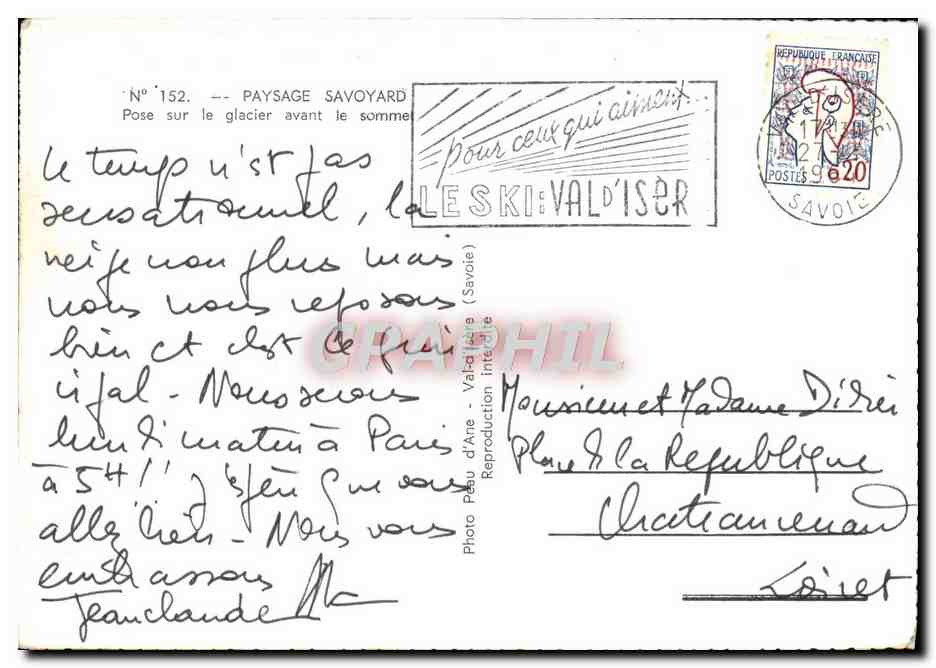 N° 152. -- PAYSAGE SAVOYARD
Pose sur le glacier avant le sommet
pour ceux qui aiment...
LE SKI: VAL D'ISÈR
REPUBLIQUE FRANCAISE
POSTES 0,20
17H
27
SAVOIE
Le temps n'est pas
sensationnel, la
neige non plus mais
nous nous reposons
bien et c'est ce qui
Nous serons
lundi matin à Paris
à 5H!! J'espère que vous
allez bien - Nous vous
embrassons
Jean claude
Photo Peau d'Ane - Val-d'Isère (Savoie)
Reproduction interdite
CPAPHIL
Monsieur et Madame Didier
Place de la République
Chateaurenard
Loiret